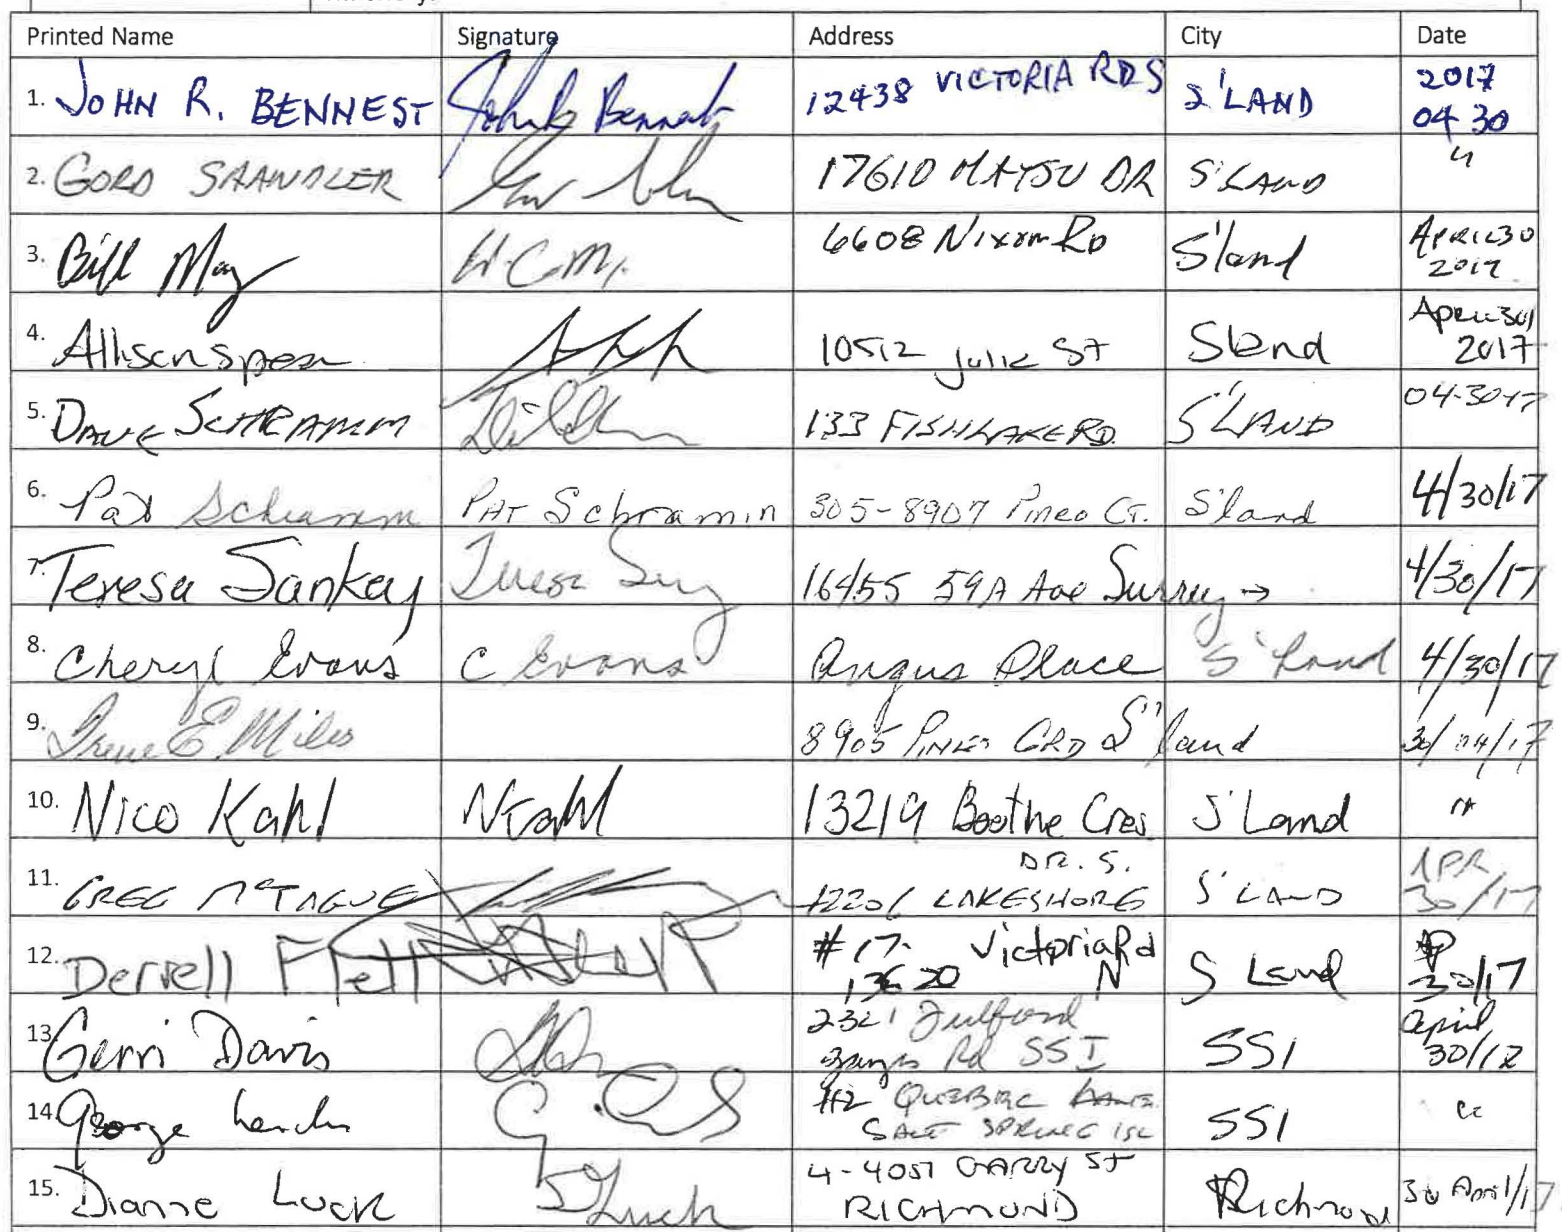 Printed Name Signature Address City Date
1. JOHN R. BENNEST John R Bennest 12438 VICTORIA RD S S'LAND 2017 04 30
2. GORD SHANDLER 17610 MATSU DR S'LAND "
3. Bill May W.C.M. 6608 Nixon RD S'land APRIL 30 2017
4. Allison Spear 10512 Julia St Sland April 30/ 2017
5. DAVE SCHRAMM 133 FISH LAKE RD. S'LAND 04-30-17
6. Pat Schramm PAT Schramm 305-8907 Pineo CT. S'land 4/30/17
7. Teresa Sankey 16455 59A Ave Surrey → 4/30/17
8. Cheryl Evans C Evans Angus Place S'Land 4/30/17
9. Irene E. Miles 8905 S'land 30/04/17
10. Nico Kahl NKahl 13219 Boothe Cres. S'Land "
11. GREG McTAGUE 12206 LAKESHORE DR. S. S'LAND APR 30/17
12. Derrell Flett #17- 13620 Victoria Rd N S Land AP 30/17
13. Gerri Davis 2321 Fulford Ganges Rd SSI SSI April 30/17
14. George #2 QUEBEC SALT SPRING ISL SSI "
15. Dianne Luck D Luck 4-4051 GARRY St RICHMOND Richmond 30 April/17